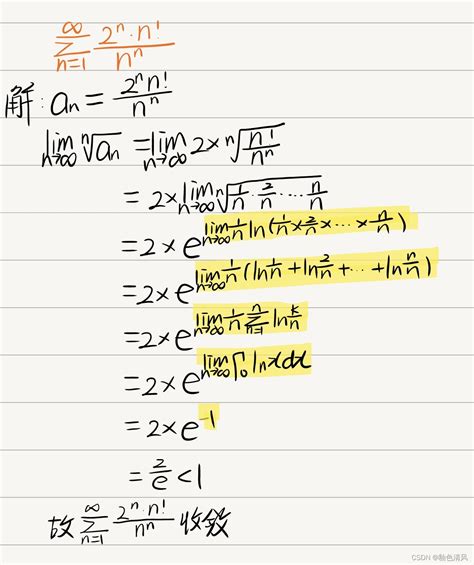 ∞∑n=1 2ⁿ·n!/nⁿ
解: aₙ = 2ⁿn!/nⁿ
lim n→∞ ⁿ√aₙ = lim n→∞ 2×ⁿ√(n!/nⁿ)
= 2×lim n→∞ ⁿ√(1/n · 2/n · ··· · n/n)
= 2×e^(lim n→∞ 1/n ln(1/n × 2/n × ··· × n/n))
= 2×e^(lim n→∞ 1/n (ln 1/n + ln 2/n + ··· + ln n/n))
= 2×e^(lim n→∞ 1/n n∑n=1 ln k/n)
= 2×e^(lim n→∞ ∫₀¹ ln x dx)
= 2×e⁻¹
= 2/e < 1
故 ∞∑n=1 2ⁿ·n!/nⁿ 收敛
CSDN @釉色清风